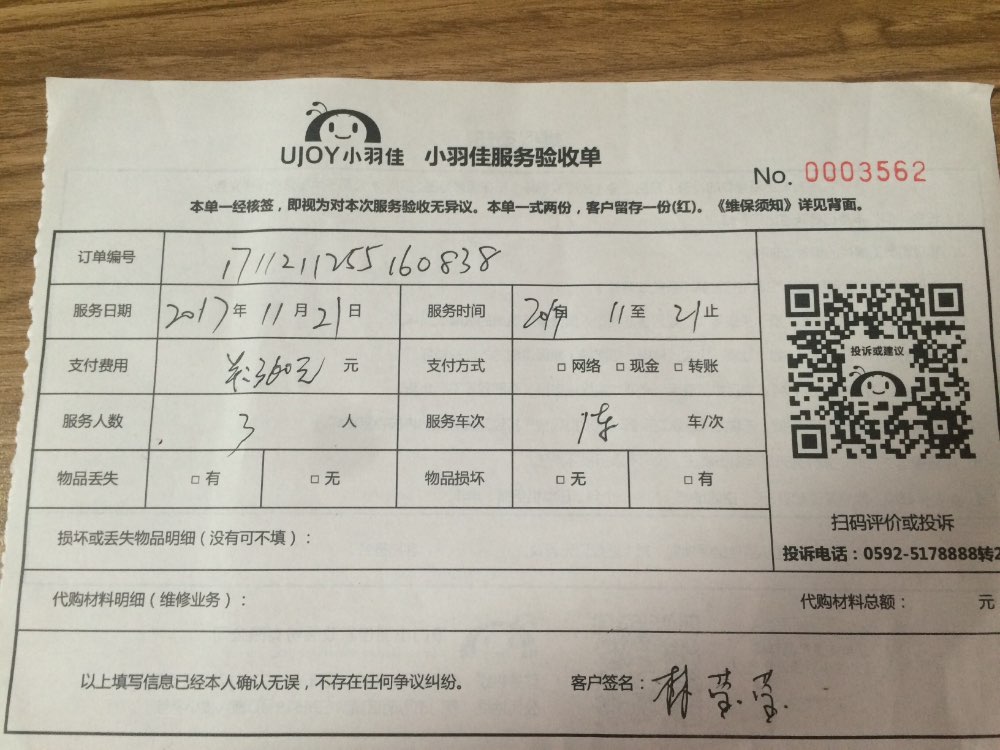 UJOY小羽佳 小羽佳服务验收单
No. 0003562
本单一经核签，即视为对本次服务验收无异议。本单一式两份，客户留存一份(红)。《维保须知》详见背面。
订单编号 171121125516 0838
服务日期 2017年 11月 21日 服务时间 自 11至 21止
投诉或建议
支付费用 共:360元 元 支付方式 □ 网络 □ 现金 □ 转账
服务人数 3 人 服务车次 1车 车/次
物品丢失 □ 有 □ 无 物品损坏 □ 无 □ 有
扫码评价或投诉
损坏或丢失物品明细（没有可不填）：
投诉电话：0592-5178888转2
代购材料明细（维修业务）： 代购材料总额： 元
以上填写信息已经本人确认无误，不存在任何争议纠纷。 客户签名：林莹莹